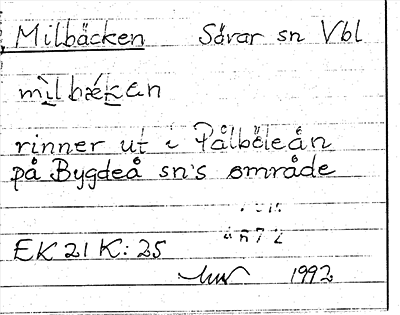 Milbäcken Sävar sn Vbl
mìlbǽken
rinner ut i Pålböleån
på Bygdeå sn's område
EK 21 K: 25
1992